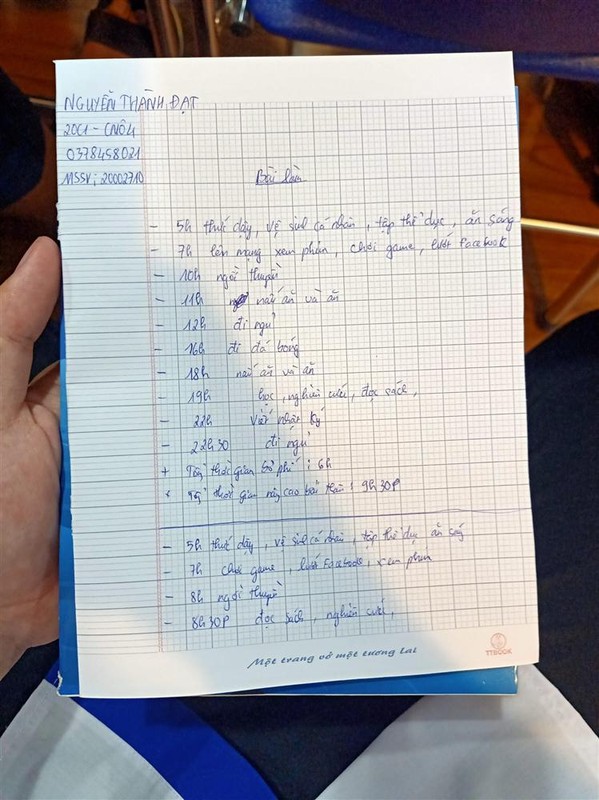 NGUYỄN THÀNH ĐẠT
20C1 - CNÔ4
0378458021
MSSV: 20002710
Bài làm
- 5h thức dậy, vệ sinh cá nhân, tập thể dục, ăn sáng
- 7h lên mạng xem phim, chơi game, lướt Facebook
- 10h ngồi thuyền
- 11h nấu ăn và ăn
- 12h đi ngủ
- 16h đi đá bóng
- 18h nấu ăn và ăn
- 19h học, nghiên cứu, đọc sách,
- 22h viết nhật ký
- 22h30 đi ngủ
+ Tổng thời gian bỏ phí : 6h
+ Tổng thời gian nâng cao bản thân : 9h30P
- 5h thức dậy, vệ sinh cá nhân, tập thể dục ăn sáng
- 7h chơi game, lướt Facebook, xem phim
- 8h ngồi thuyền
- 8h30P đọc sách, nghiên cứu,
Một trang vở một tương lai
TTBOOK